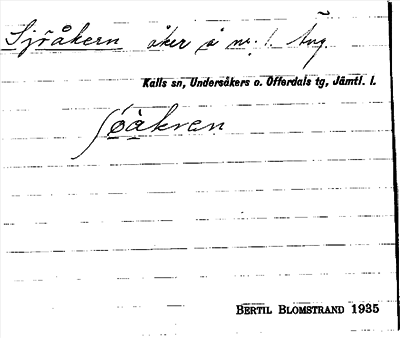 Sjråkern åker å nr. 1. Åŋ.
Kalls sn, Undersåkers o. Offerdals tg, Jämtl. l.
ʃöåkren
BERTIL BLOMSTRAND 1935